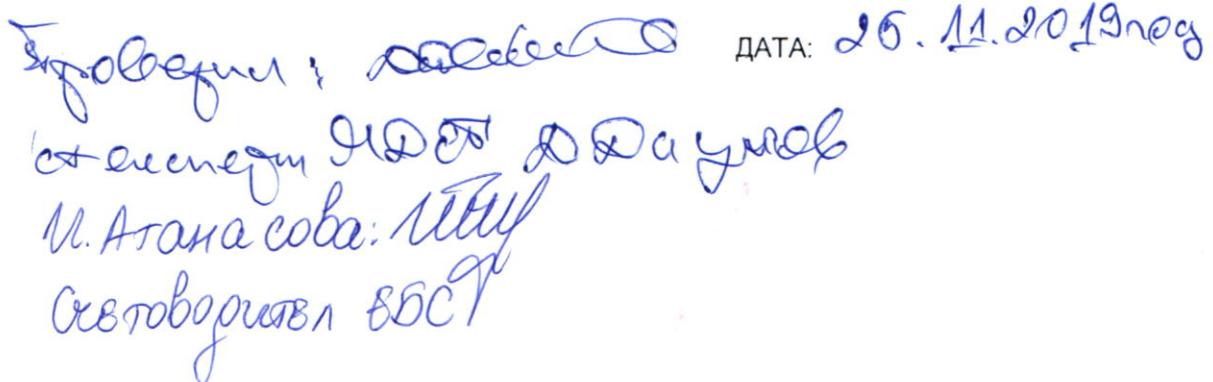 Проверил: ДАТА: 25.11.2019год
ст експерт ЯДСТ Д Даумов
И. Атанасова:
Счетоводител ББСТ